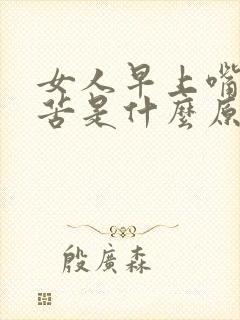 女人早上嘴
苦是什麼原
殷廣森